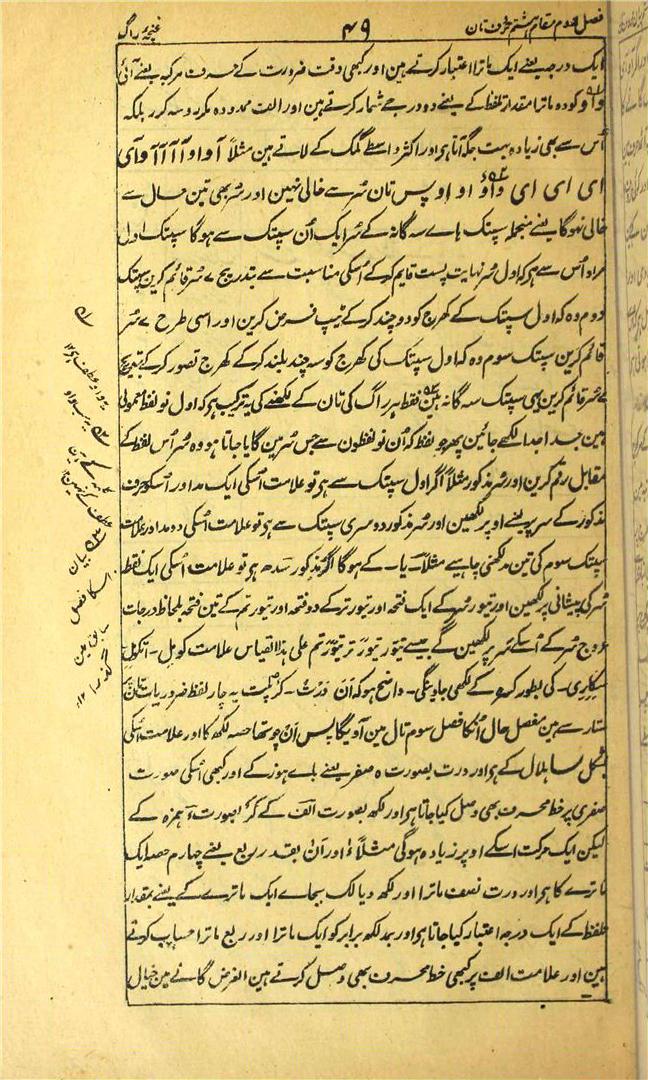 فصل دوم مقام ہشتم حرف تان ۴۹ غنچۂ راگ
ایک درجہ یعنے ایک ماترا اعتبار کرتے ہین اور کبھی وقت ضرورت کے حرف مرکب یعنے آئی
وآو کو دہ ماترا مقدار تلفظ کے یعنے دو درجے شمار کرتے ہین اور الف ممدودہ مکرر وسہ کرر بلکہ
اُس سے بھی زیادہ بہت جگہ آتا ہی اور اکثر واسطے گمک کے لاتے ہین مثلاً آ و او آ آ آ آ و آی
ای ای ای ای واؤ او او پس تان سُر سے خالی نہین اور سُر بھی تین حال سے
خالی نہوگا یعنے منجملہ سپتک ہاے سہ گانہ کے سُر ایک اُن سپتک سے ہوگا سپتک اول
مراد اُس سے ہی کہ اول سُر نہایت پست قایم کرکے اُسکی مناسبت سے بتدریج ۷ سُر قائم کرین سپتک
دوم وہ کہ اول سپتک کے کھرج کو دو چند کرکے ٹیپ فرض کرین اور اسی طرح ۷ سُر
قائم کرین سپتک سوم وہ کہ اول سپتک کی کھرج کو سہ چند بلند کرکے کھرج تصور کرکے بتدریج
۷ سُر قائم کرین یہی سپتک سہ گانہ ہین فقط ہر راگ کی تان کے لکھنے کی یہ ترکیب ہی کہ اول نو لفظ اصولی
ہین جدا جدا لکھے جائین پھر جو لفظ کہ اُن نو لفظون سے جس سُر مین گایا جاتا ہو وہ سُر اُس لفظ کے
مقابل رقم کرین اور سُر مذکور مثلاً اگر اول سپتک سے ہی تو علامت اُسکی ایک مد اور اُسکو حرف
مذکور کے سر پر یعنے اوپر لکھین اور سُر مذکور دوسری سپتک سے ہی تو علامت اُسکی دو مد اور علامت
سپتک سوم کی تین مد لکھنی چاہیے مثلاً یا کے ہوگا اگر مذکور سدھ ہی تو علامت اُسکی ایک نقطہ
سُر کی پیشانی پر لکھین اور تیور سُر کے ایک فتحہ اور تیور تر کے دو فتحہ اور تیور تم کے تین فتحہ بلحاظ درجات
عروج سُر کے اُسکے سُر پر لکھین گے جیسے تیور تیور تر تیور تم علیٰ ہذا القیاس علامت کومل۔ اتکومل
سکاری۔ کی بطور کسرہ کے لکھی جاوینگی۔ واضح ہو کہ اَن دَرُت۔ لگھ پلت یہ چار لفظ ضروریات تان
ستار سے ہین مفصل حال اُنکا فصل سوم تال مین آویگا پس اَن چوتھا حصہ لکھ کا اور علامت اُسکی
بشکل ہلال کے ہی اور درت بصورت ہ صفر یعنے ہاے ہوز کے اور کبھی اُسکی صورت
صفری پر خط محرف بھی وصل کیا جاتا ہی اور لکھ بصورت الف کے گُر بصورت ء ہمزہ کے
لیکن ایک حرکت اسکے اوپر زیادہ ہوگی مثلاً ءُ اور اَن بقدر ربع یعنے چہارم حصہ ایک
ماترے کا ہی اور درت نصف ماترا اور لکھ دیا لک بجاے ایک ماترے کے یعنے بمقدار
تلفظ کے ایک درجہ اعتبار کیا جاتا ہی اور بعد لکھ برابر کو ایک ماترا اور ربع ماترا حساب کرتے
ہین اور علامت الف پر کبھی خط محرف بھی وصل کرتے ہین الغرض گانے مین خیال
بیان
اسکا فصل
سابق مین
گذرا ۱۲